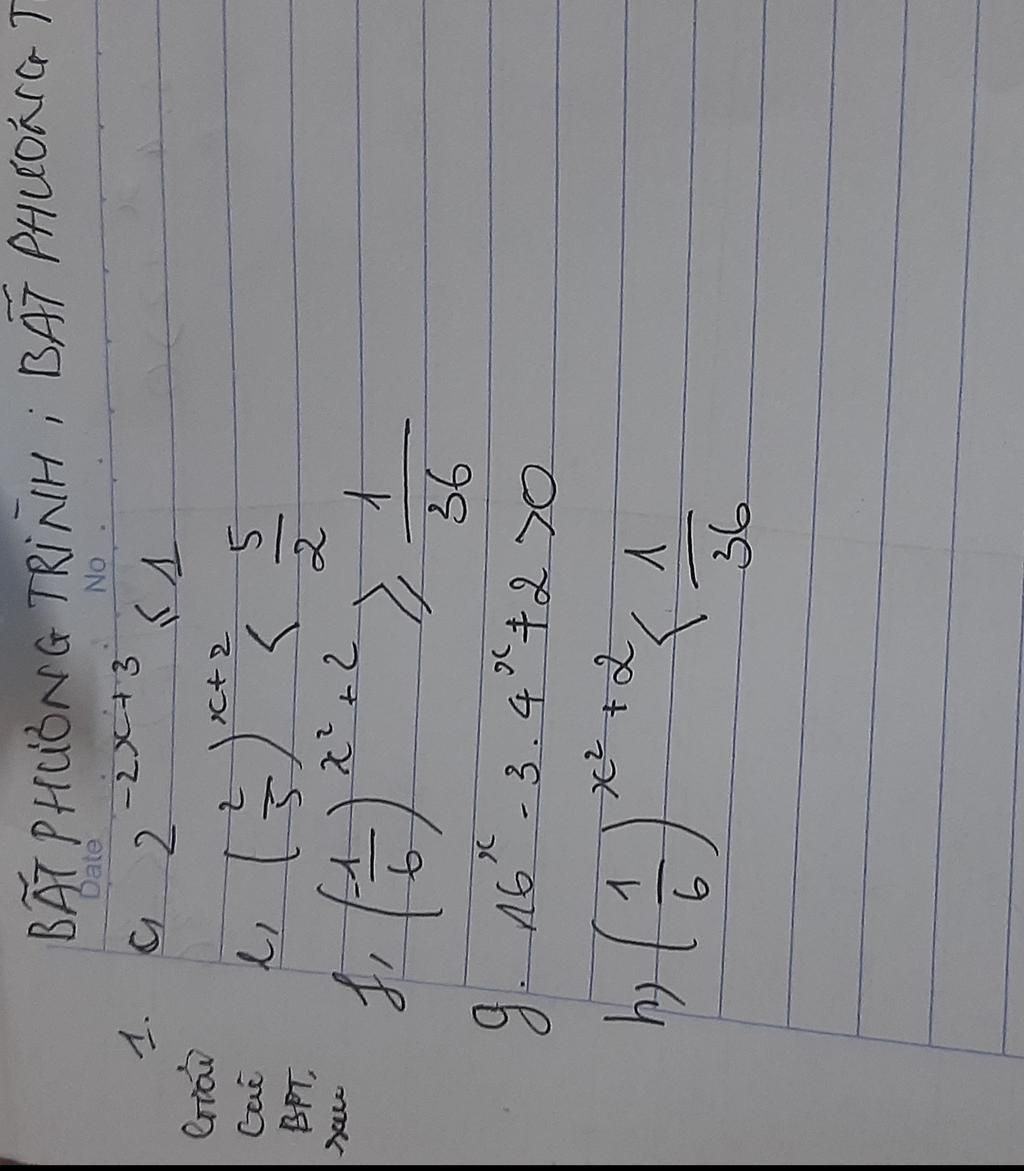 BẤT PHƯƠNG TRÌNH ; BẤT PHƯƠNG T
Date No .
1. Giải các BPT, sau
c, 2^{-2x+3} ⩽ 1
e, (2/5)^{x+2} < 5/2
f, (1/6)^{x²+2} ⩾ 1/36
g. 16^x - 3.4^x + 2 > 0
h, (1/6)^{x²+2} < 1/36